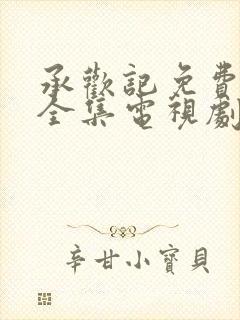 承歡記免費
全集電視劇
辛甘小寶貝